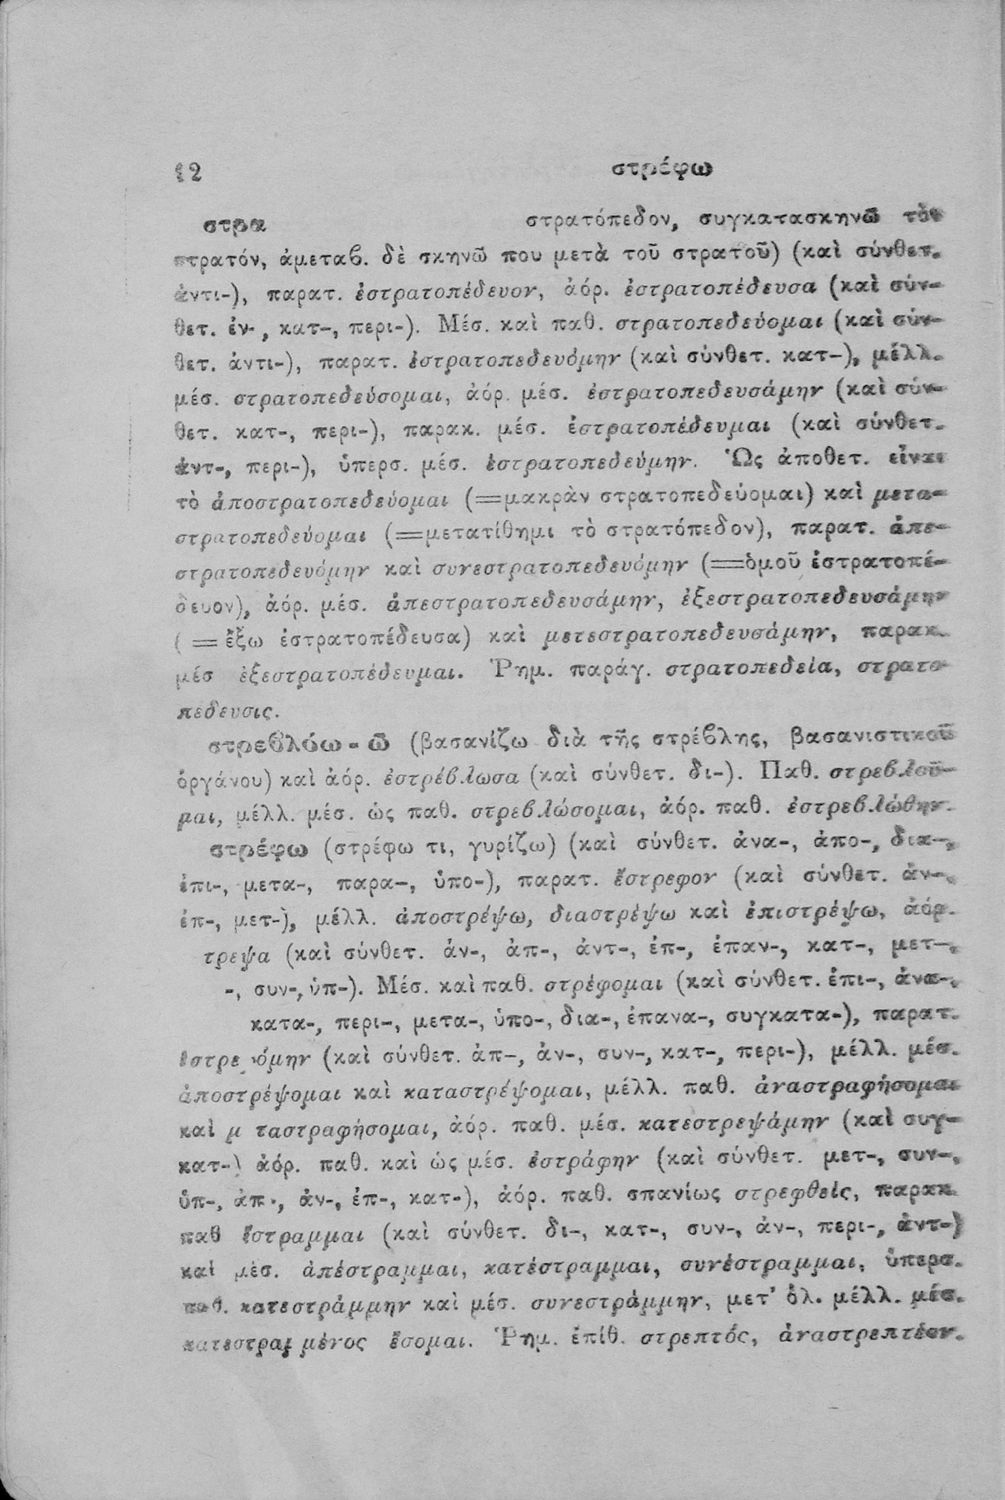 12 στρέφω
στρα στρατόπεδον, συγκατασκηνῶ τὸν
στρατόν, ἀμεταβ. δὲ σκηνῶ που μετὰ τοῦ στρατοῦ) (καὶ σύνθετ.
ἀντι-), παρατ. ἐστρατοπέδευον, ἀόρ. ἐστρατοπέδευσα (καὶ σύν-
θετ. ἐν-, κατ-, περι-). Μέσ. καὶ παθ. στρατοπεδεύομαι (καὶ σύν-
θετ. ἀντι-), παρατ. ἐστρατοπεδευόμην (καὶ σύνθετ. κατ-), μέλλ.
μέσ. στρατοπεδεύσομαι, ἀόρ. μέσ. ἐστρατοπεδευσάμην (καὶ σύν-
θετ. κατ-, περι-), παρακ. μέσ. ἐστρατοπέδευμαι (καὶ σύνθετ.
ἀντ-, περι-), ὑπερσ. μέσ. ἐστρατοπεδεύμην. Ὡς ἀποθετ. εἶναι
τὸ ἀποστρατοπεδεύομαι (=μακρὰν στρατοπεδεύομαι) καὶ μετα-
στρατοπεδεύομαι (=μετατίθημι τὸ στρατόπεδον), παρατ. ἀπε-
στρατοπεδευόμην καὶ συνεστρατοπεδευόμην (=ὁμοῦ ἐστρατοπέ-
δευον), ἀόρ. μέσ. ἀπεστρατοπεδευσάμην, ἐξεστρατοπεδευσάμην
(=ἔξω ἐστρατοπέδευσα) καὶ μετεστρατοπεδευσάμην, παρακ.
μέσ ἐξεστρατοπέδευμαι. Ῥημ. παράγ. στρατοπεδεία, στρατο-
πέδευσις.
στρεβλόω-ῶ (βασανίζω διὰ τῆς στρέβλης, βασανιστικοῦ
ὀργάνου) καὶ ἀόρ. ἐστρέβλωσα (καὶ σύνθετ. δι-). Παθ. στρεβλοῦ-
μαι, μέλλ. μέσ. ὡς παθ. στρεβλώσομαι, ἀόρ. παθ. ἐστρεβλώθην.
στρέφω (στρέφω τι, γυρίζω) (καὶ σύνθετ. ἀνα-, ἀπο-, δια-,
ἐπι-, μετα-, παρα-, ὑπο-), παρατ. ἔστρεφον (καὶ σύνθετ. ἀν-,
ἐπ-, μετ-), μέλλ. ἀποστρέψω, διαστρέψω καὶ ἐπιστρέψω, ἀόρ.
τρεψα (καὶ σύνθετ. ἀν-, ἀπ-, ἀντ-, ἐπ-, ἐπαν-, κατ-, μετ-,
-, συν-, ὑπ-). Μέσ. καὶ παθ. στρέφομαι (καὶ σύνθετ. ἐπι-, ἀνα-,
κατα-, περι-, μετα-, ὑπο-, δια-, ἐπανα-, συγκατα-), παρατ.
ἐστρε όμην (καὶ σύνθετ. ἀπ-, ἀν-, συν-, κατ-, περι-), μέλλ. μέσ.
ἀποστρέψομαι καὶ καταστρέψομαι, μέλλ. παθ. ἀναστραφήσομαι
καὶ μ ταστραφήσομαι, ἀόρ. παθ. μέσ. κατεστρεψάμην (καὶ συγ-
κατ-) ἀόρ. παθ. καὶ ὡς μέσ. ἐστράφην (καὶ σύνθετ. μετ-, συν-,
ὑπ-, ἀπ-, ἀν-, ἐπ-, κατ-), ἀόρ. παθ. σπανίως στρεφθείς, παρακ.
παθ ἔστραμμαι (καὶ σύνθετ. δι-, κατ-, συν-, ἀν-, περι-, ἀντ-)
καὶ μέσ. ἀπέστραμμαι, κατέστραμμαι, συνέστραμμαι, ὑπερσ.
παθ. κατεστράμμην καὶ μέσ. συνεστράμμην, μετ' ὀλ. μέλλ. μέσ.
κατεστραμμένος ἔσομαι. Ῥημ. ἐπίθ. στρεπτός, ἀναστρεπτέον.